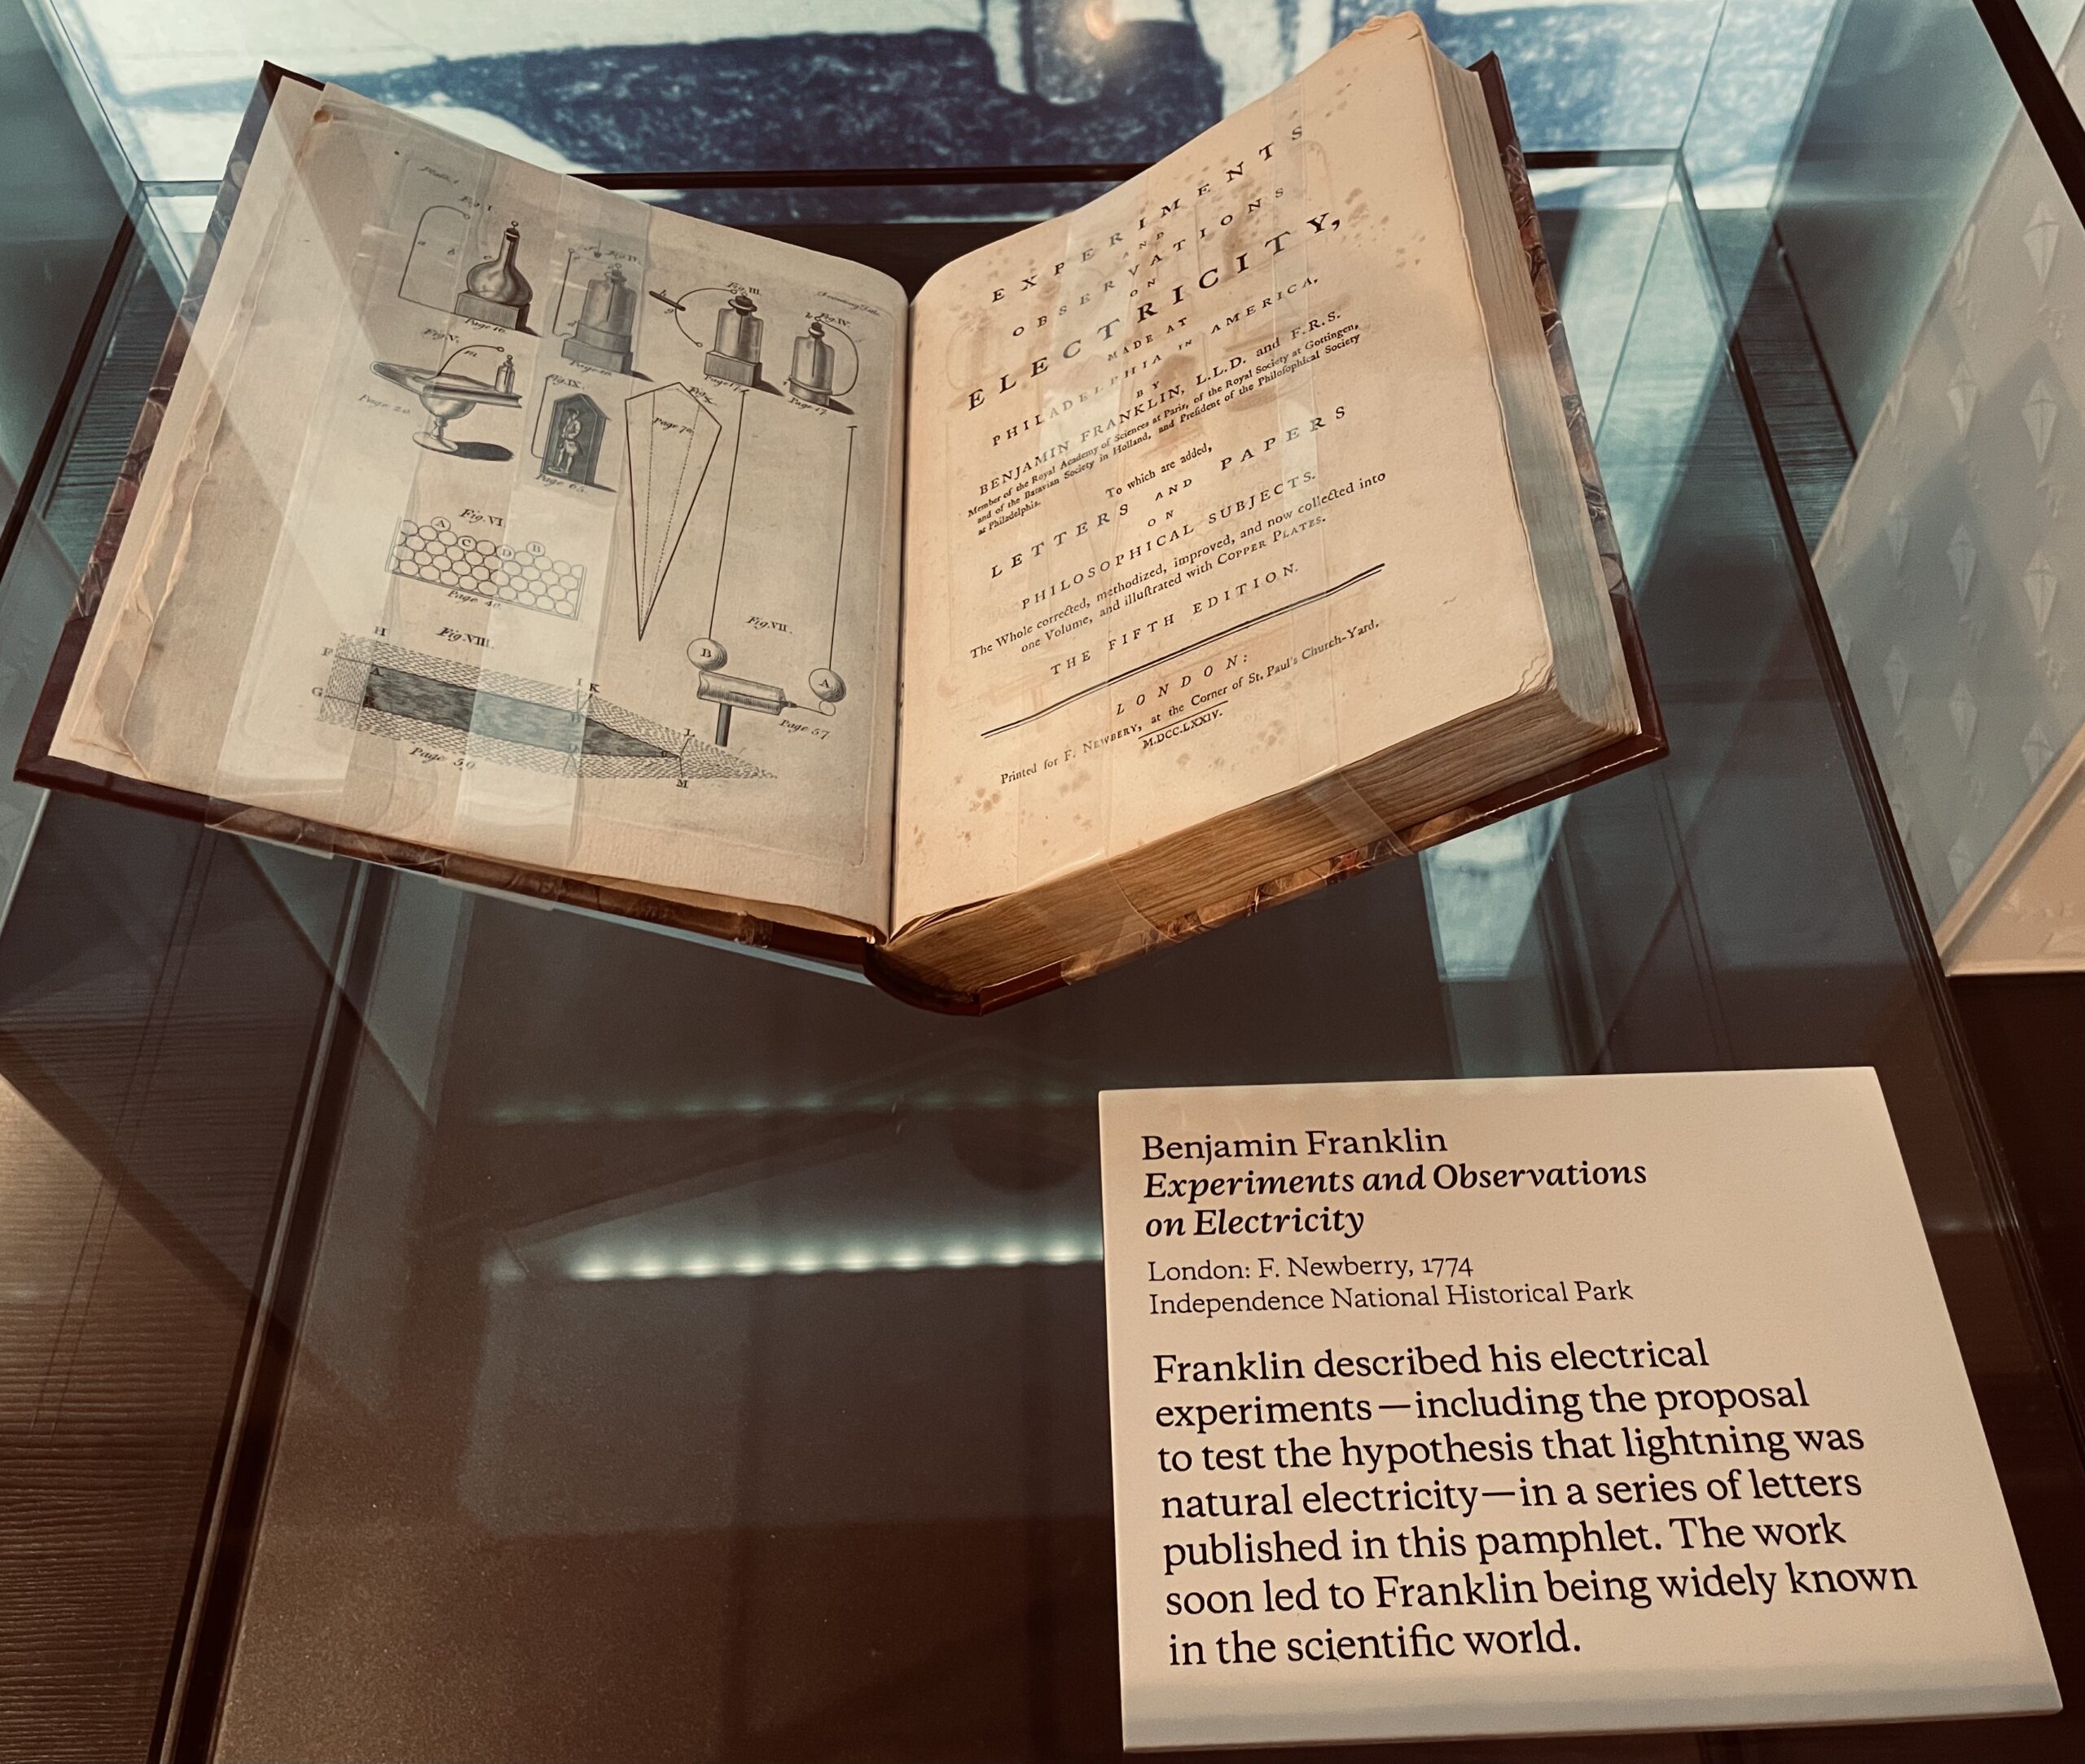 Plate I
Fig. I.
a
b
c
Page 16.
Fig. III.
Page 17
Fig. IV.
Page 17
Fig. V.
m
Page 20
Fig. IX.
Page 65.
Page 70.
Fig. VI.
A
C
D
B
Page 40.
Fig. VII.
B
A
Page 57
Fig. VIII.
H
F
G
A
I K
L
M
Page 50
EXPERIMENTS
AND
OBSERVATIONS
ON
ELECTRICITY,
MADE AT
PHILADELPHIA IN AMERICA,
BY
BENJAMIN FRANKLIN, L.L.D. and F.R.S.
Member of the Royal Academy of Sciences at Paris, of the Royal Society at Gottingen,
and of the Batavian Society in Holland, and Preſident of the Philoſophical Society
at Philadelphia.
To which are added,
LETTERS AND PAPERS
ON
PHILOSOPHICAL SUBJECTS.
The Whole corrected, methodized, improved, and now collected into
one Volume, and illuſtrated with COPPER PLATES.
THE FIFTH EDITION.
LONDON:
Printed for F. NEWBERY, at the Corner of St. Paul's Church-Yard.
M.DCC.LXXIV.
Benjamin Franklin
Experiments and Observations
on Electricity
London: F. Newberry, 1774
Independence National Historical Park
Franklin described his electrical
experiments—including the proposal
to test the hypothesis that lightning was
natural electricity—in a series of letters
published in this pamphlet. The work
soon led to Franklin being widely known
in the scientific world.